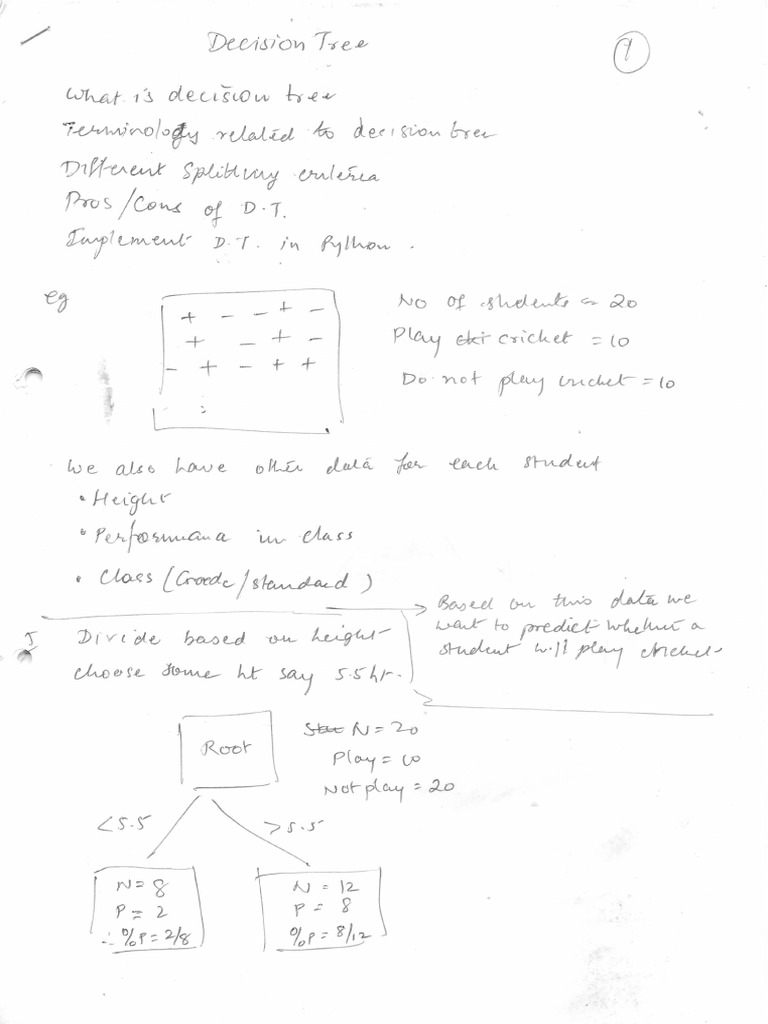 Decision Tree
1
What is decision tree
Terminology related to decision tree
Different Splitting criteria
Pros/Cons of D.T.
Implement D.T. in Python.
eg
+ - - + -
+ - + -
- + - + +
:
No of students = 20
Play cricket = 10
Do not play cricket = 10
We also have other data for each student
• Height
• Performana in class
• Class (Grade/standard)
Based on this data we
want to predict whether a
student will play cricket
I Divide based on height
choose some ht say 5.5 ht.
Root
N = 20
Play = 10
Not play = 20
<5.5
>5.5
N = 8
P = 2
∴ %P = 2/8
N = 12
P = 8
%P = 8/12